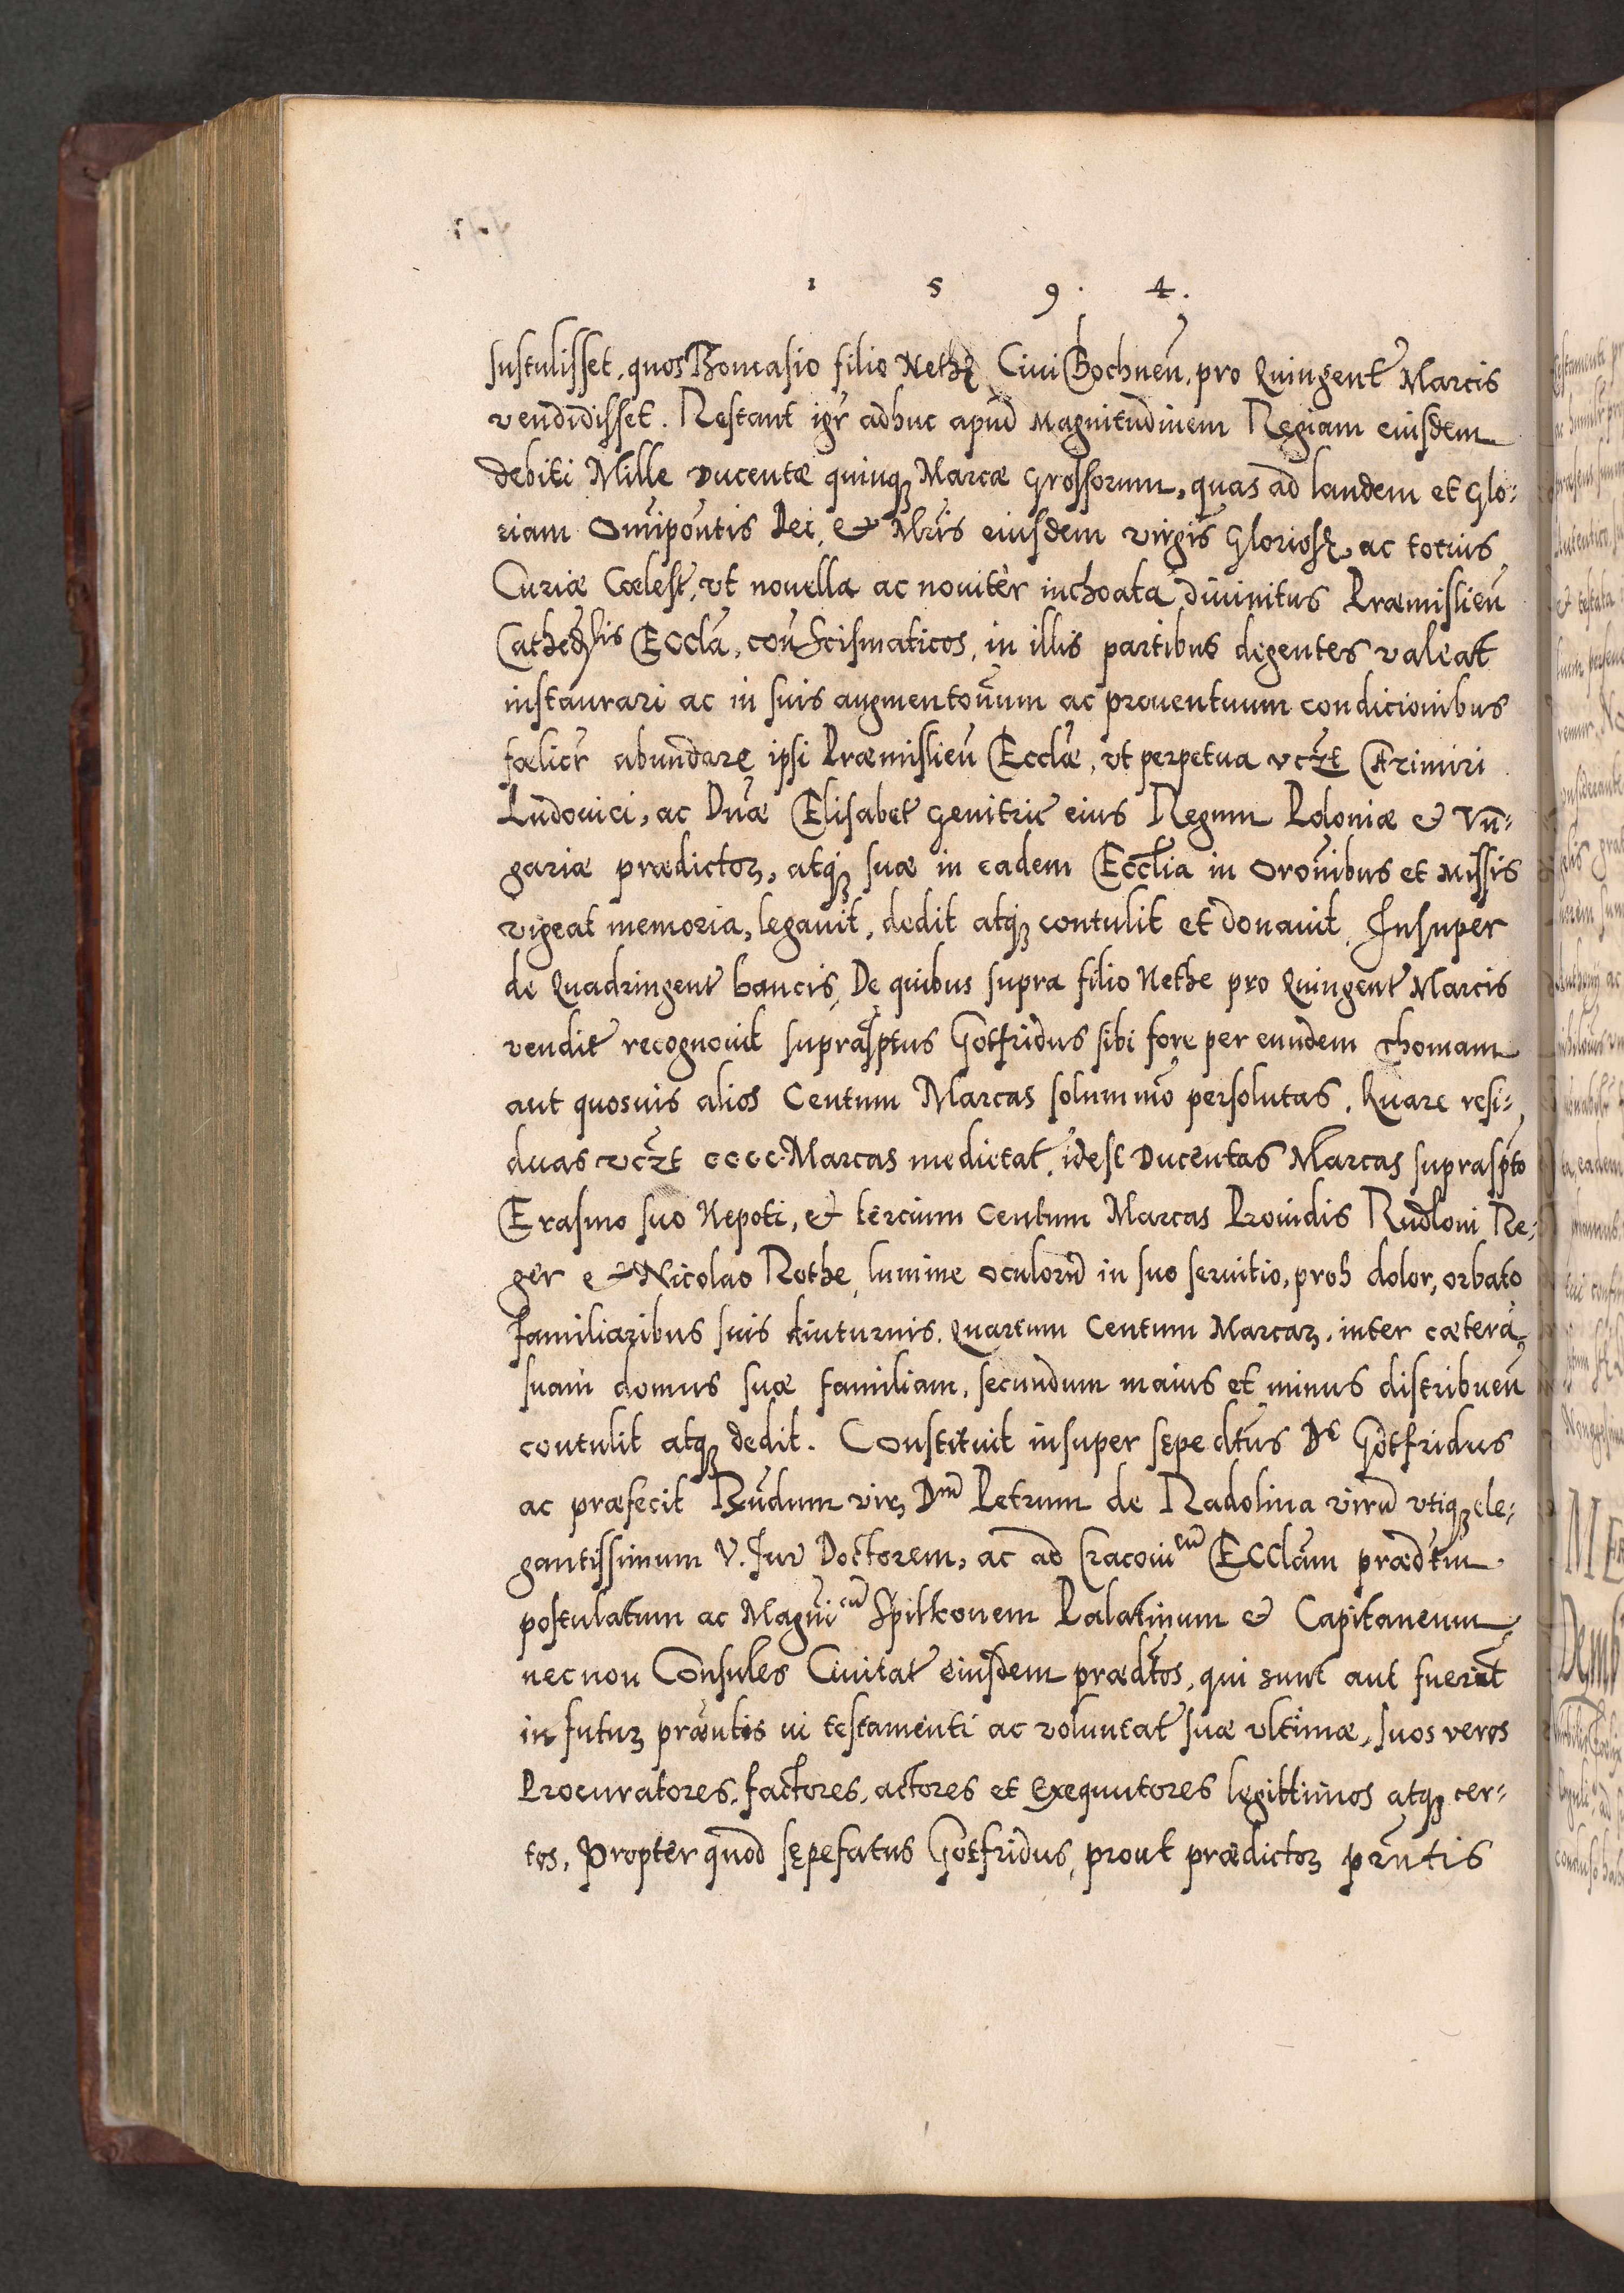 1 5 9. 4.
sustulisset, quos Thomasio filio Nethę Ciui Bochneñ, pro Quingent Marcis
vendidisset. Restant igr̄ adhuc apud Magnitudinem Regiam eiusdem
debiti Mille Ducentæ quinqȝ Marcæ Grossorum, quas ad laudem et Glo-
riam Omnipontis Dei, & Mr̄is eiusdem virgis̄ Gloriosę, ac totius
Curiæ Cœlest, vt nouella ac nouiter inchoata diuinitus Præmislieñ
Cathedlis Eccla, con Scismaticos, in illis partibus degentes valeat
instaurari ac in suis augmentonum ac prouentuum condicionibus
fœlicr̄ abundare ipsi Præmislieñ Ecclæ, vt perpetua vcꝫt
Ludouici, ac Dnæ Elisabet Genitric eius Regum Poloniæ & Vn-
gariæ prædictoꝝ, atqȝ suæ in eadem Ecclia in Oronibus et Missis
vigeat memoria, legauit, dedit atqȝ contulit et donauit. Insuper
de Quadringent bancis, De quibus supra filio Nethe pro Quingent Marcis
vendit recognouit suprasptus Gotfridus sibi fore per eundem Thomam
aut quosuis alios Centum Marcas solummo persolutas. Quare resi-
duas vcꝫt cccc. Marcas medietat, idest Ducentas Marcas supraspto
Erasmo suo Nepoti, & tercium Centum Marcas Prouidis Rudloni Re-
ger & Nicolao Rothe, lumine oculorū in suo seruitio, proh dolor, orbato
familiaribus suis diuturnis. Quartum Centum Marcaꝝ, inter cætera
suam domus suæ familiam, secundum maius et minus distribueñ
contulit atqȝ dedit. Constituit insuper sępe dtus Ds Gotfridus
ac præfecit virꝫ Dnū Petrum de Radolina virū vtiqȝ ele-
gantissimum V. Jur Doctorem, ac ad Cracouień Ecclam prædtm
postulatum ac Magnicū Spitkonem Palatinum & Capitaneum
necnon Consules Ciuitat eiusdem prædtos, qui sunt aut fuerint
in futuꝝ præntis ui testamenti ac voluntat suæ vltimæ, suos veros
Procuratores, factores, actores et Exequutores legittimos atqȝ cer-
tos, Propter quod sępefatus Gotfridus, prout prædictoꝝ pr̄ntis